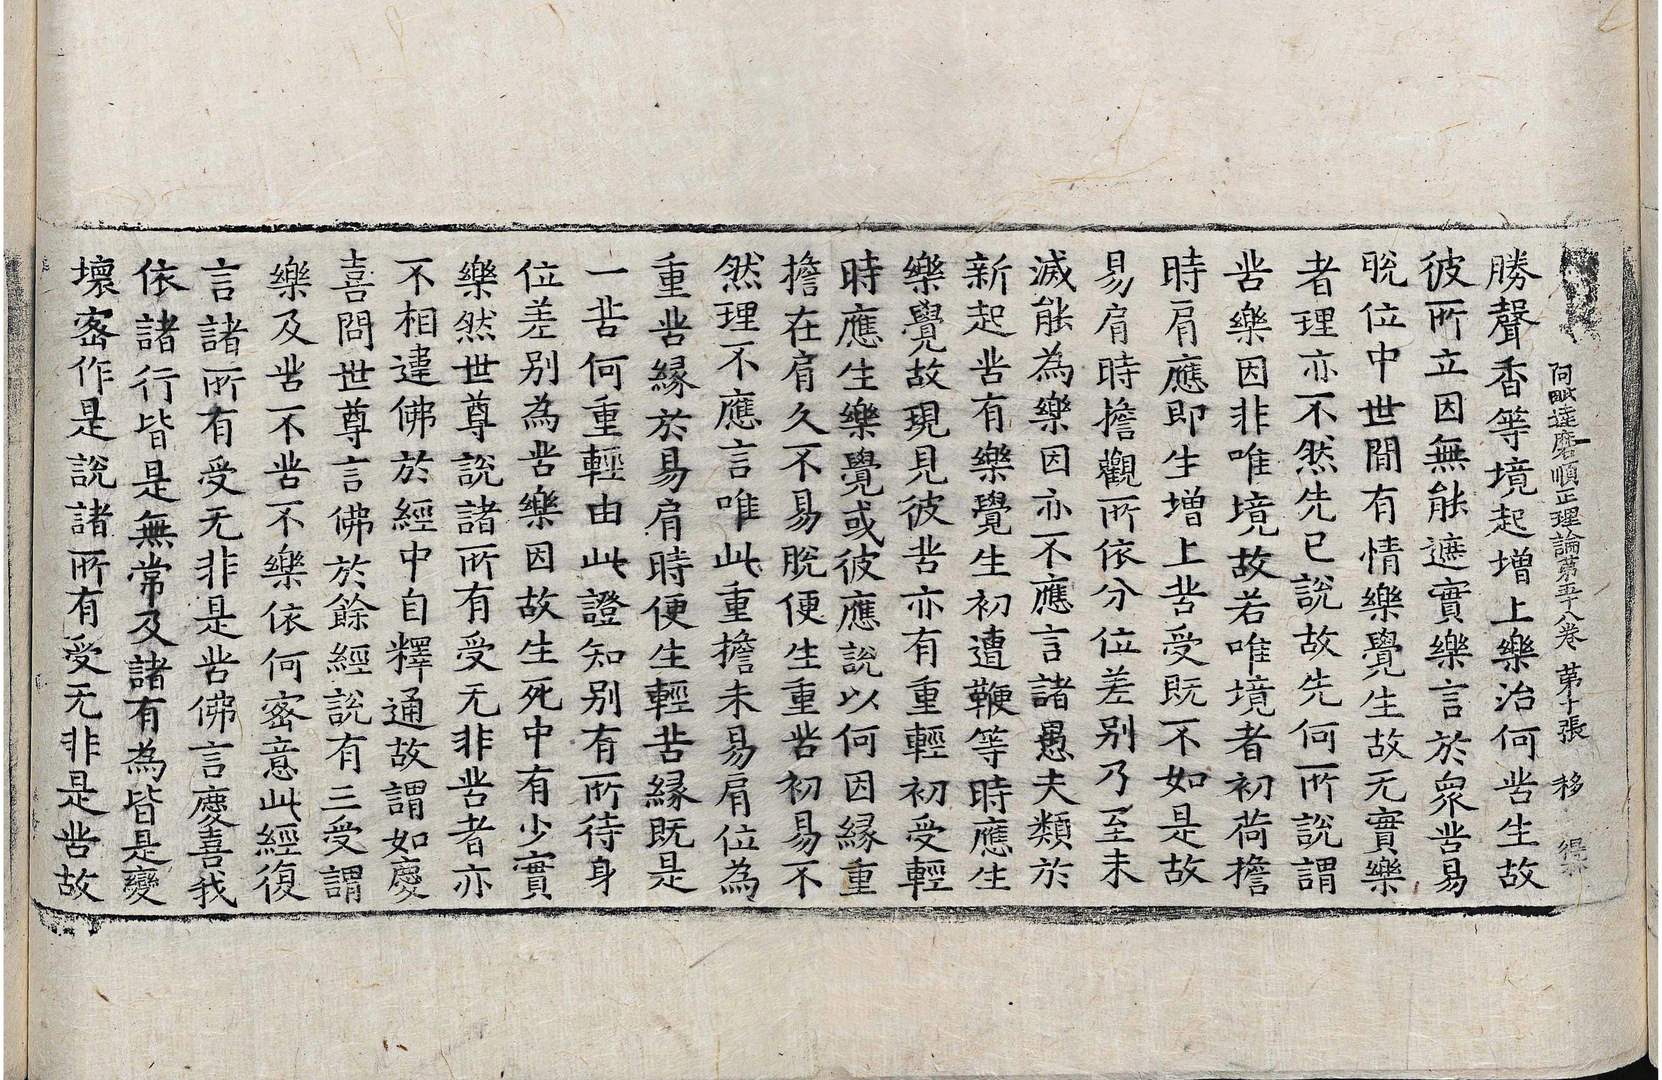 阿毗達磨順正理論第五十八卷 第十張 移
勝聲香等境起增上樂治何苦生故
彼所立因無能遮實樂言於衆苦易
脫位中世閒有情樂覺生故无實樂
者理亦不然先已說故先何所說謂
苦樂因非唯境故若唯境者初荷擔
時肩應即生增上苦受既不如是故
易肩時擔觀所依分位差别乃至未
滅能為樂因亦不應言諸愚夫類於
新起苦有樂覺生初遭鞭等時應生
樂覺故現見彼苦亦有重輕初受輕
時應生樂覺或彼應說以何因緣重
擔在肩久不易脫便生重苦初易不
然理不應言唯此重擔未易肩位為
重苦緣於易肩時便生輕苦緣既是
一苦何重輕由此證知别有所待身
位差别為苦樂因故生死中有少實
樂然世尊說諸所有受无非苦者亦
不相違佛於經中自釋通故謂如慶
喜問世尊言佛於餘經說有三受謂
樂及苦不苦不樂依何密意此經復
言諸所有受无非是苦佛言慶喜我
依諸行皆是無常及諸有為皆是變
壞密作是說諸所有受无非是苦故